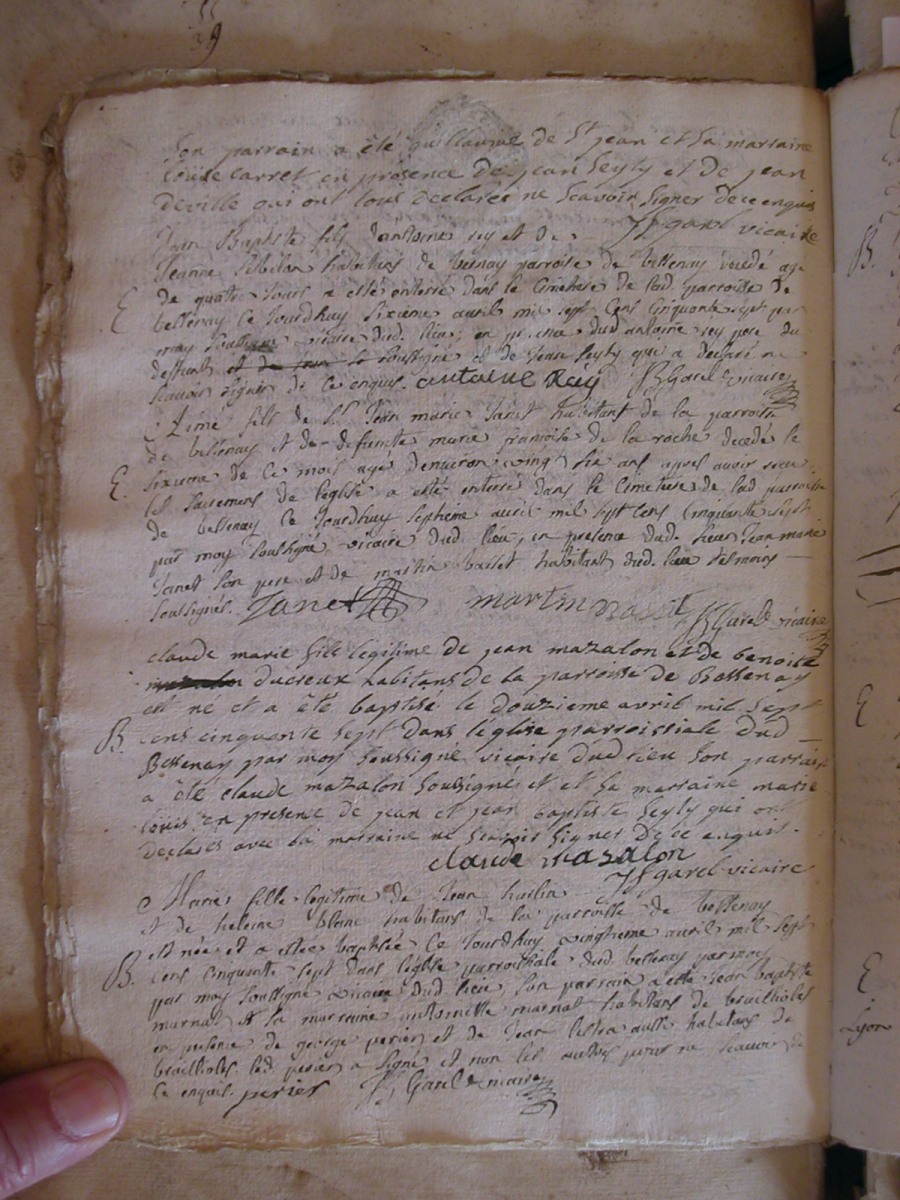 son parrain a été guillaume de St jean et sa marraine
louise carret en présence de jean seyty et de jean
deville qui ont tous déclarés ne scavoir signer de ce enquis
JB garel vicaire
Jean Baptiste fils d'antoine rey et de
Jeanne habitans de parroisse de bessenay décédé agé
E
de quatre jours a esté enterré dans le cimetiere de lad. parroisse de
bessenay ce jourdhuy sixieme avril mil sept cens cinquante sept par
moy soussigné vicaire dud. lieu, en presence dud antoine rey pere du
deffunt et de jean le soussigné et de jean seyty qui a déclaré ne
scavoir signer de ce enquis. antoine Ray JB Garel vicaire
Aimé fils de Sr. Jean marie Janet habitant de la parroisse
de bessenay et de deffunte marie francoise de la roche décédé le
E.
sixieme de ce mois agé denviron vingt six ans apres avoir receu
les sacremens de l'eglise a esté enterré dans le cimetiere de lad parroisse
de bessenay ce jourdhuy septieme avril mil sept cens cinquante sept
par moy soussigné vicaire dud. lieu, en presence dud. sieur Jean marie
Janet son pere et de martin basset habitant dud. lieu témoins
soussignés. Janet martin basset JB Garel vicaire
claude marie fils légitime de jean mazalon et de benoite
ducreux habitans de la parroisse de Bessenay
est né et a été baptisé le douzieme avril mil sept
B.
cens cinquante sept dans l'église parroissiale dud
Bessenay par moy soussigné vicaire dud lieu son parrain
a été claude mazalon soussigné et et sa marraine marie
en presence de jean et jean baptiste seyty qui ont
déclarés avec la marraine ne scavoir signer de ce enquis.
claude mazalon
JB garel vicaire
Marie fille légitime de Jean
et de heleine blanc habitans de la parroisse de bessenay
est née et a estée baptisée ce jourdhuy vingtieme avril mil sept
B.
cens cinquante sept dans l'église parroissiale dud. bessenay par moy
par moy soussigné vicaire dud lieu, son parrain a esté jean baptiste
marnat et sa marraine antoinette marnat habitans de
en presence de george perier et de Jean aussi habitans de
led. perier a signé et non les autres pour ne scavoir de
ce enquis. perier JB Garel vicaire
B.
E
E.
Lyon